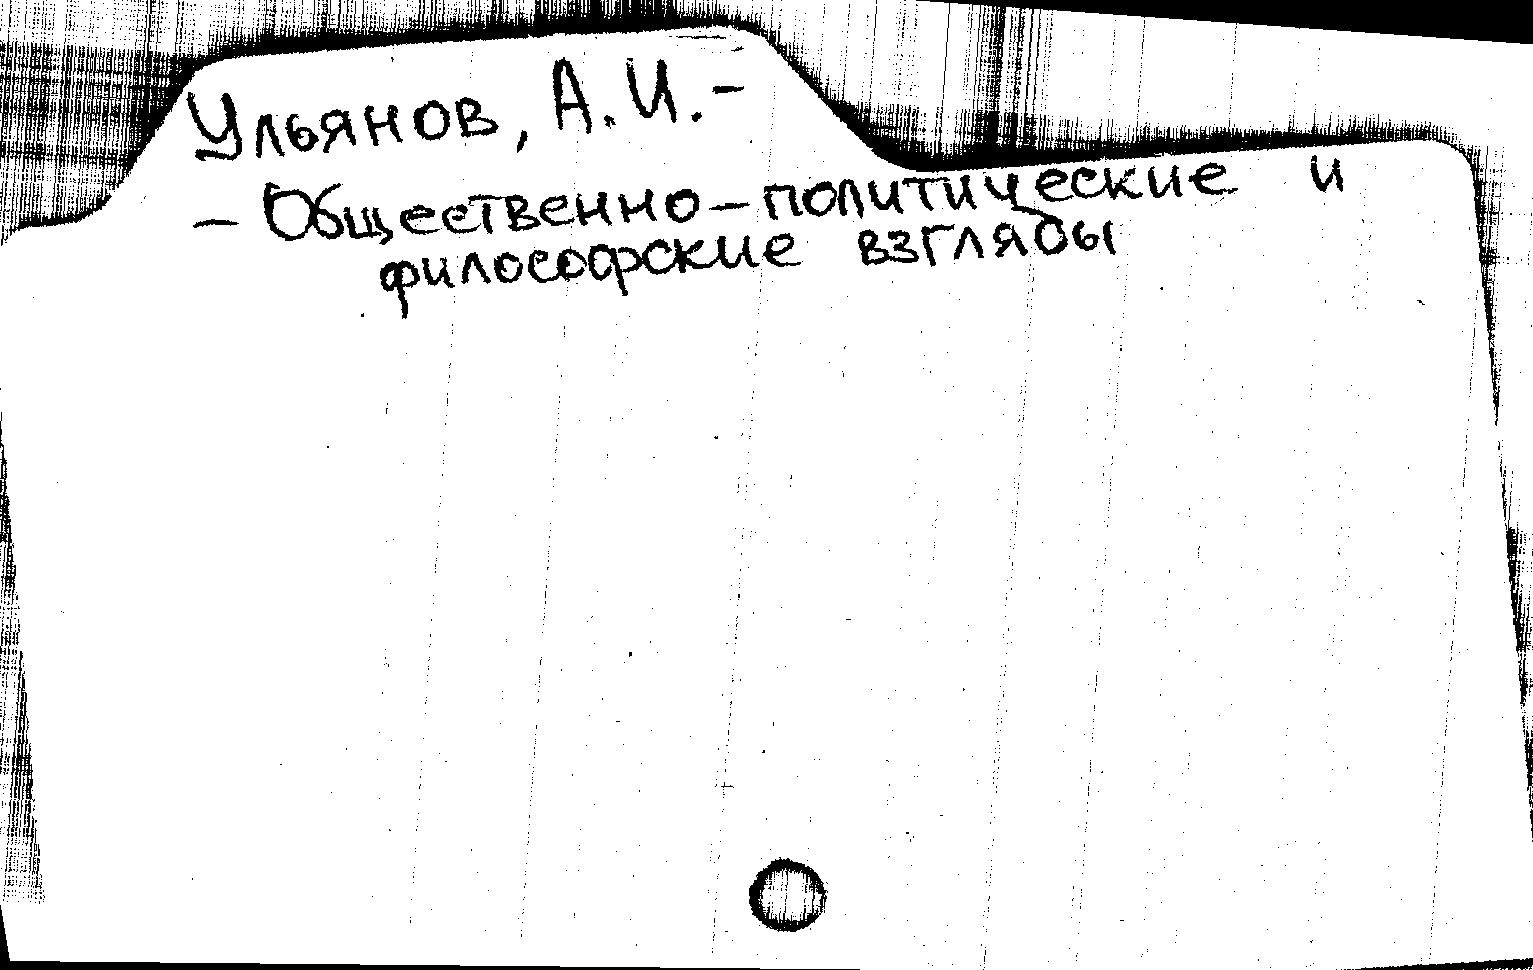 Ульянов, А.И.-
- Общественно-политические и
философские взгляды